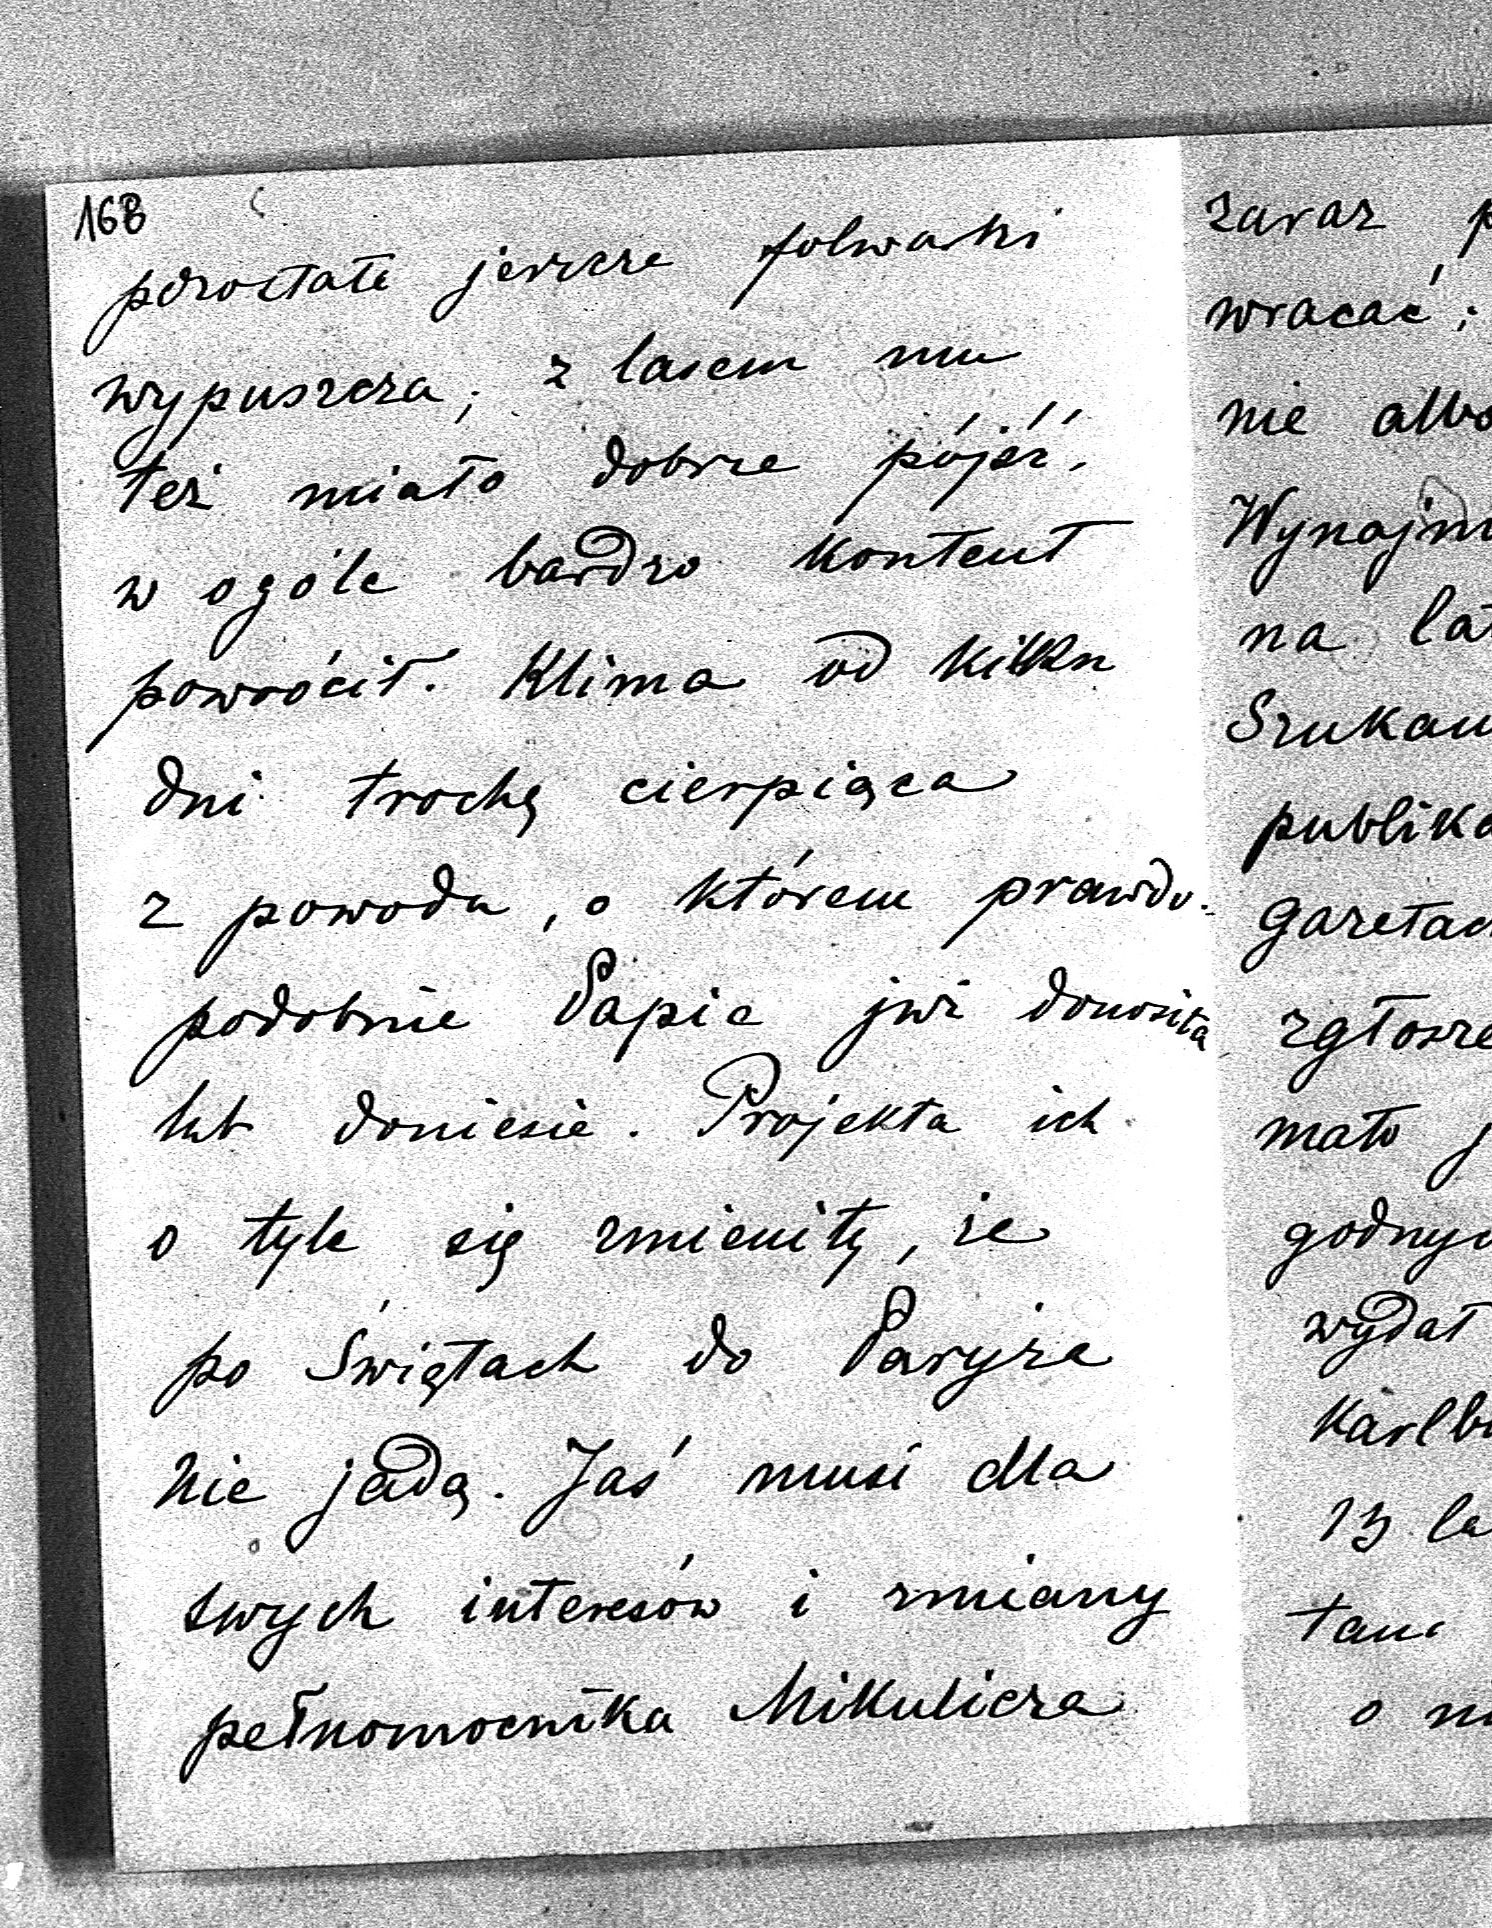 168
pozostałe jeszcze folwarki
wypuszcza, z lasem mu
też miało dobrze pójść,
w ogóle bardzo kontent
powrócił. Klima od kilku
dni trochę cierpiąca
z powodu, o którem prawdo-
podobnie Papie już donosiła
lub doniesie. Projekta ich
o tyle się zmieniły, że
po Świętach do Paryża
nie jadą. Jaś musi dla
swych interesów i zmiany
pełnomocnika Mikulicza
zaraz p
wracać;
nie albo
Wynajm
na lat
Szukam
publika
gazetach
zgłosze
mało j
godnyc
wydał
Karlb
13 la
tam
o ni